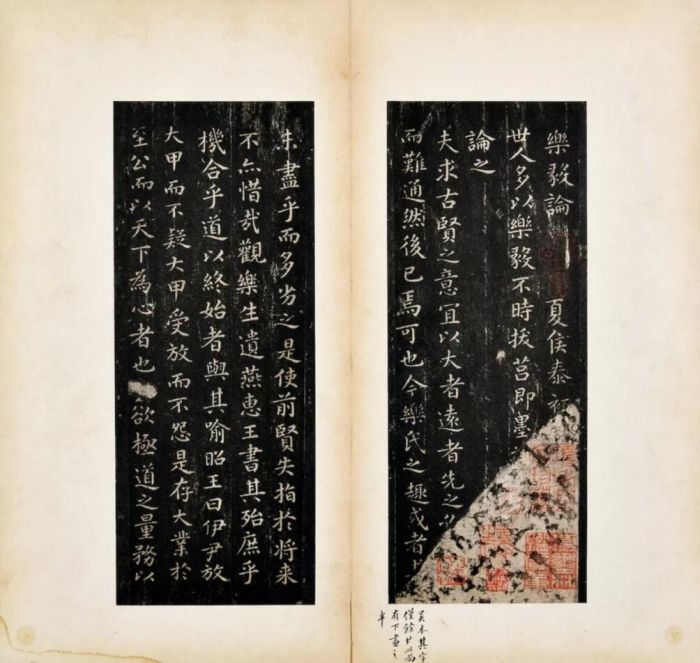 樂毅論 夏侯泰初
世人多以樂毅不時拔莒即墨
論之
夫求古賢之意宜以大者遠者先之必
而難通然後已焉可也今樂氏之趣或者
未盡乎而多劣之是使前賢失指於將来
不亦惜哉觀樂生遺燕惠王書其殆庶乎
機合乎道以終始者與其喻昭王曰伊尹放
大甲而不疑大甲受放而不怨是存大業於
至公而以天下為心者也 欲極道之量務以
吴本其字
僅餘廿此尚
有下畫之
半